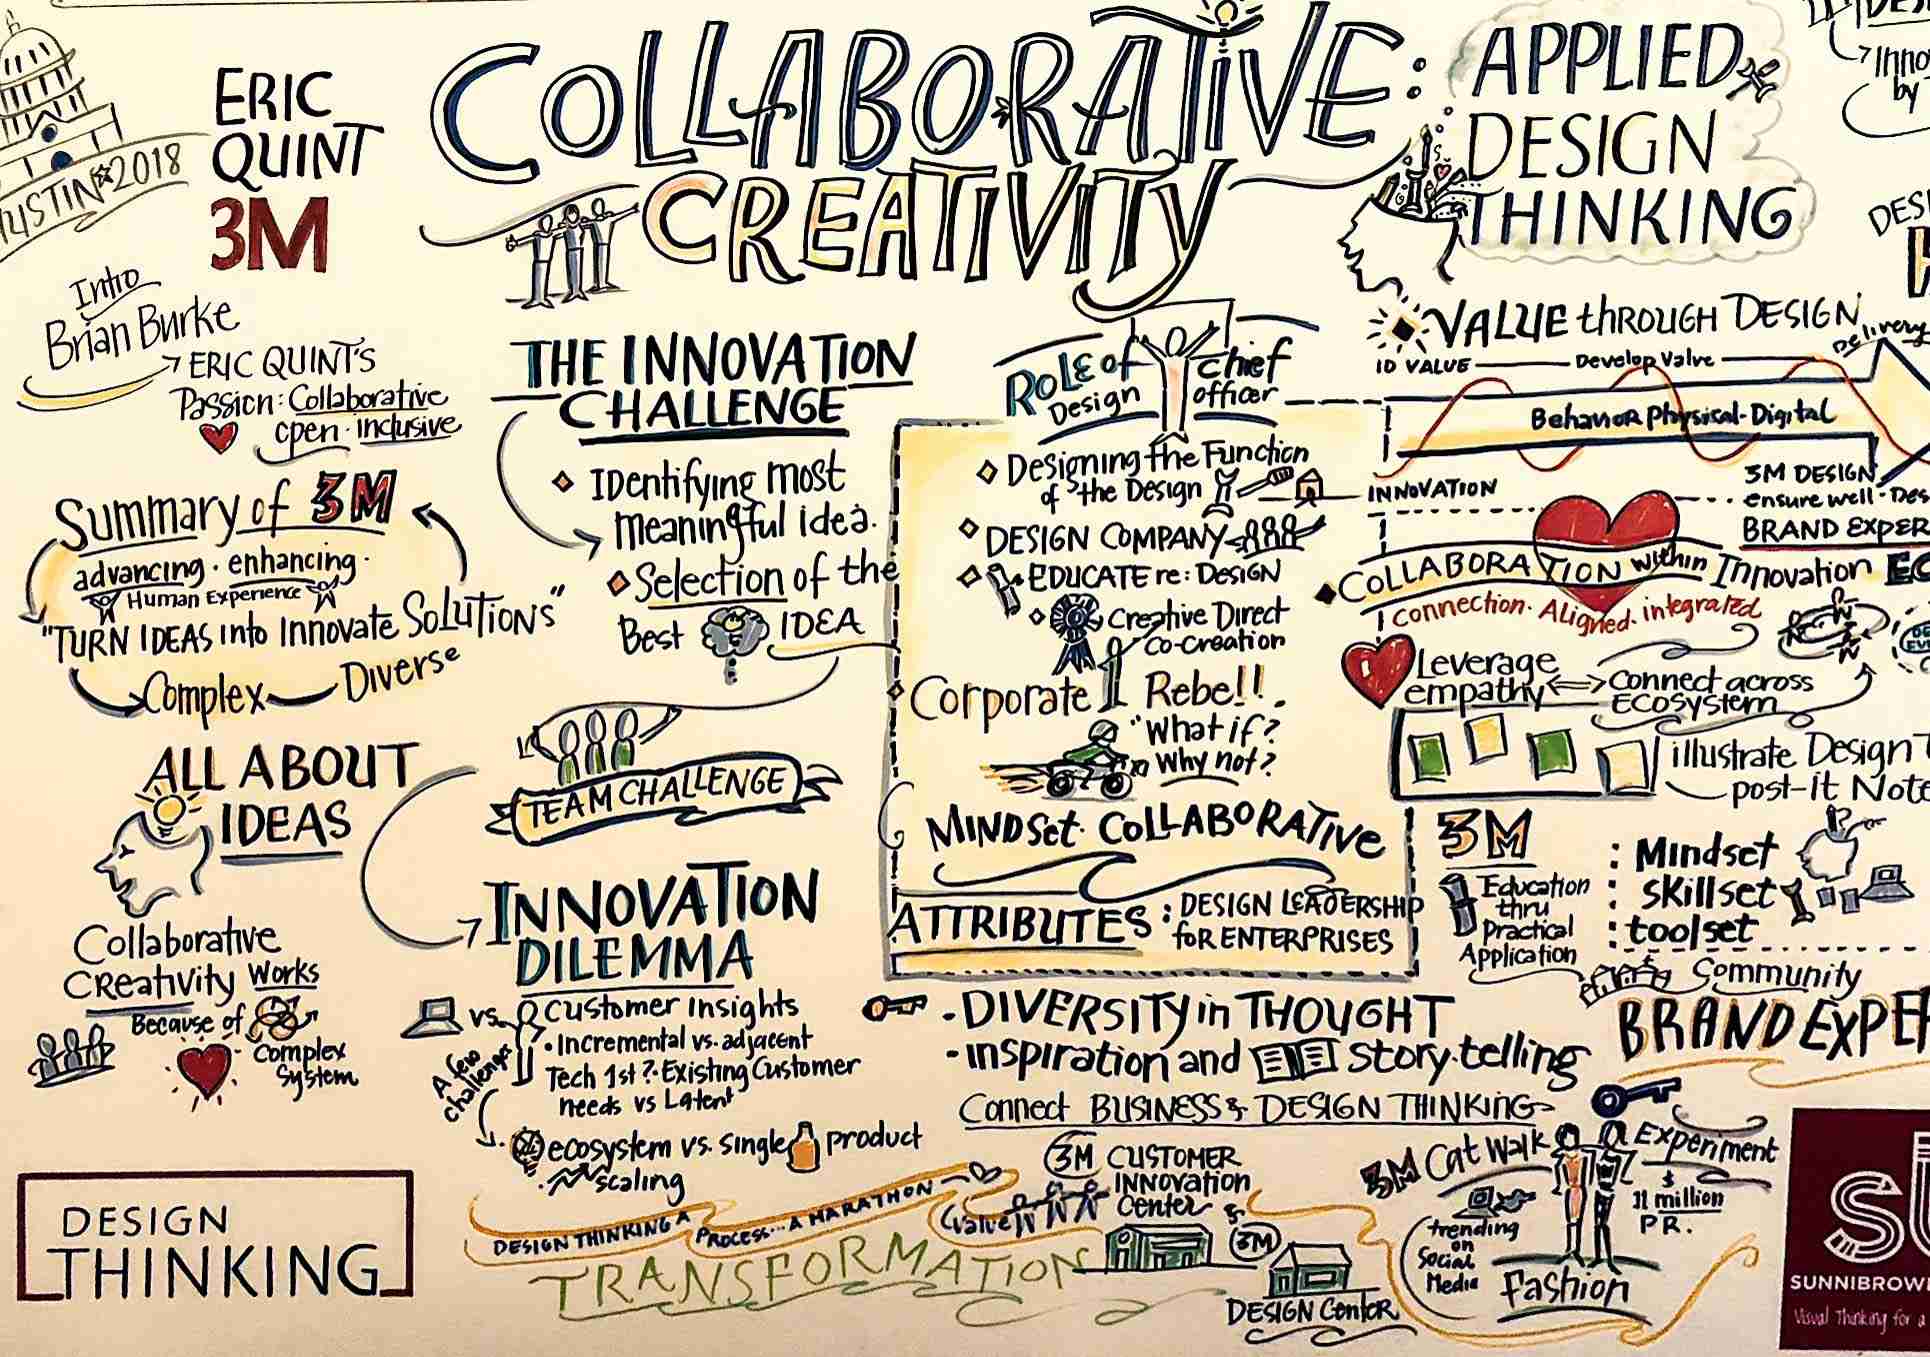 AUSTIN 2018
ERIC
QUINT
3M
COLLABORATIVE:
CREATIVITY
APPLIED
DESIGN
THINKING
Intro
Brian Burke
ERIC QUINT'S
Passion: Collaborative
open · inclusive
Summary of 3M
advancing · enhancing ·
Human Experience
"TURN IDEAS into Innovate SOLUTIONS"
Complex
Diverse
ALL ABOUT
IDEAS
Collaborative
Creativity Works
Because of
Complex
System
DESIGN
THINKING
THE INNOVATION
CHALLENGE
Identifying most
meaningful idea.
Selection of the
Best IDEA
TEAM CHALLENGE
INNOVATION
DILEMMA
vs. Customer Insights
A few
challenges
• Incremental vs. adjacent
Tech 1st? · Existing Customer
needs vs Latent
ecosystem vs. single product
scaling
DESIGN THINKING A PROCESS... A MARATHON
TRANSFORMATION
Role of Chief
Design officer
Designing the Function
of the Design
DESIGN COMPANY
EDUCATE re: DESIGN
Creative Direct
Co-creation
Corporate Rebel!!
"What if?
Why not?
MINDSet · COLLABORATIVE
ATTRIBUTES : DESIGN LEADERSHIP
for ENTERPRISES
- DIVERSITY in THOUGHT
- inspiration and story·telling
Connect BUSINESS & DESIGN THINKING
3M CUSTOMER
INNOVATION
Center
&
Value
3M
DESIGN Center
VALUE through DESIGN
ID VALUE
Develop Value
Delivery
Behavior Physical-Digital
INNOVATION
3M DESIGN
ensure well-Des
BRAND EXPER
COLLABORATION within Innovation EC
connection · Aligned · integrated
Leverage
empathy
connect across
Ecosystem
illustrate Design T
post-it Note
3M
Education
thru
Practical
Application
: Mindset
: skillset
: toolset
Community
BRAND EXPE
3M Cat Walk
Experiment
$
11 million
PR.
trending
on
Social
Media
fashion
Inno
by
DESI
SUNNIBROW
Visual Thinking for a